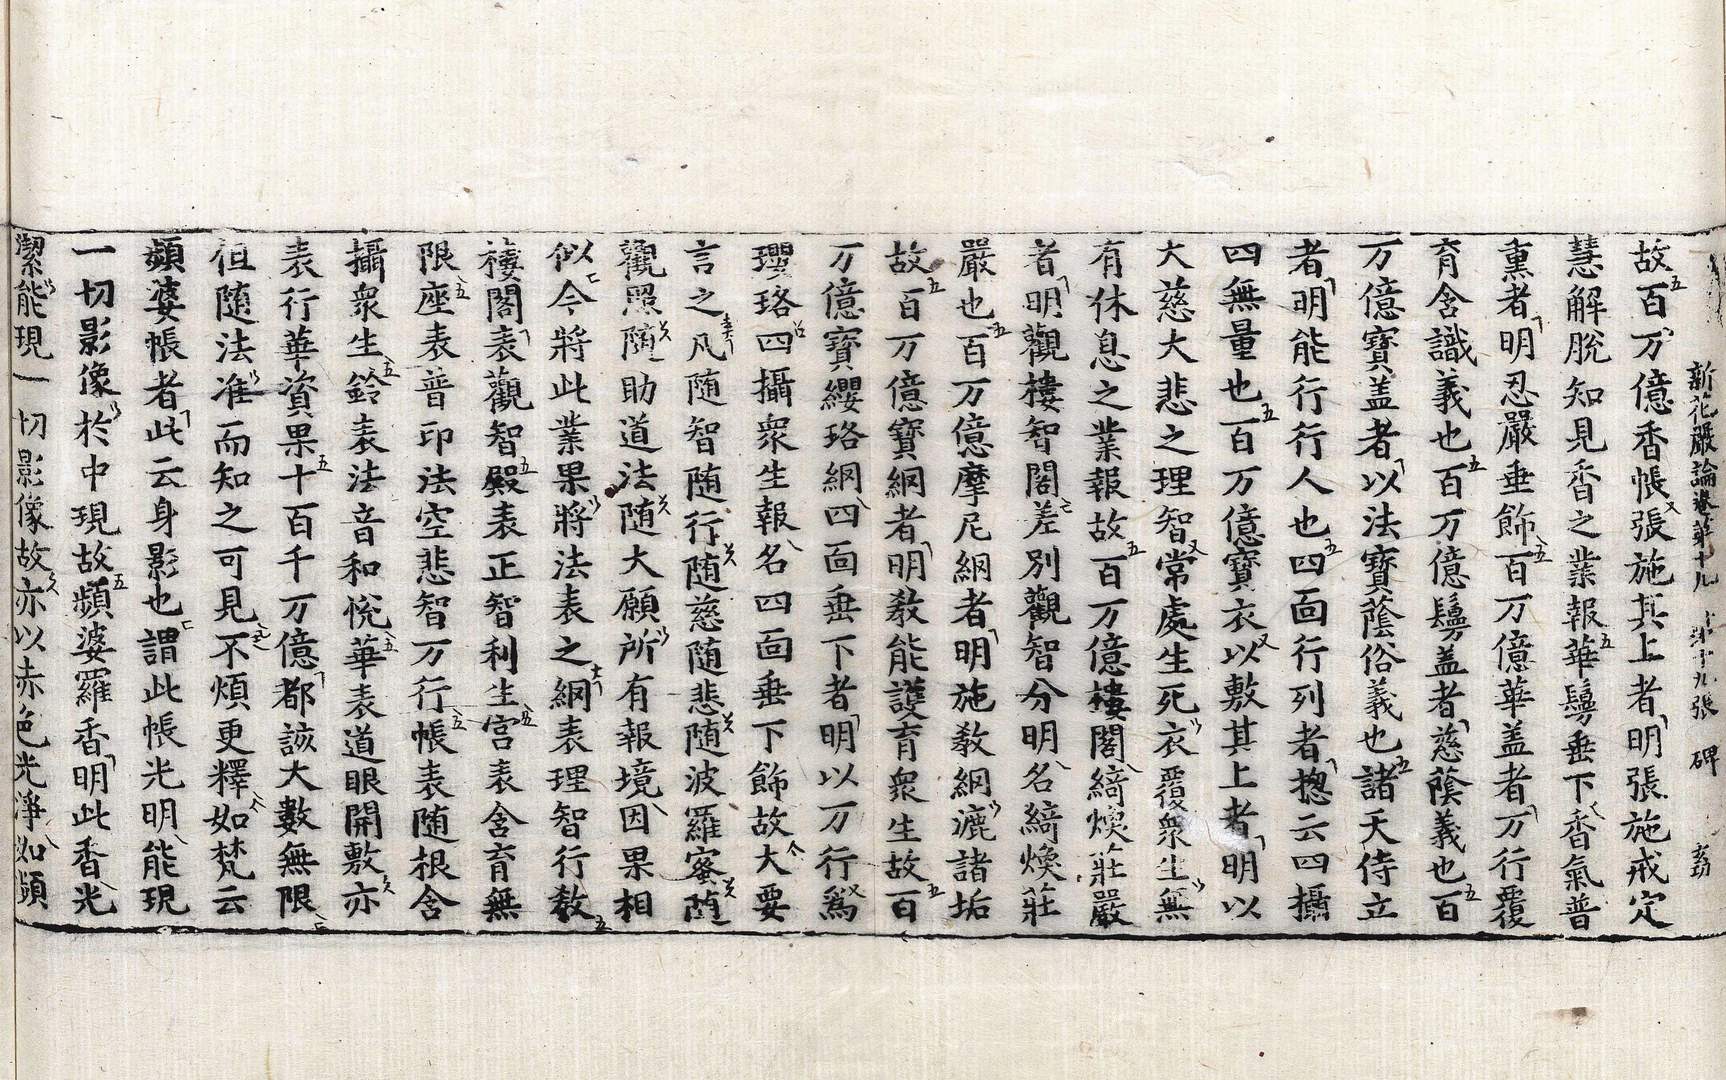 新花嚴論卷第十九 第十九張 碑
故百万億香帳張施其上者明張施戒定
慧解脫知見香之業報華鬘垂下香氣普
熏者明忍嚴垂飾百万億華盖者万行覆
育含識義也百万億鬘盖者慈蔭義也百
万億寶盖者以法寶蔭俗義也諸天侍立
者明能行行人也四面行列者揔云四攝
四無量也百万億寶衣以敷其上者明以
大慈大悲之理智常處生死衣覆衆生無
有休息之業報故百万億樓閣綺煥莊嚴
者明觀樓智閣差別觀智分明名綺煥莊
嚴也百万億摩尼網者明施教網漉諸垢
故百万億寶網者明教能護育衆生故百
万億寶纓珞網四面垂下者明以万行爲
瓔珞四攝衆生報名四面垂下飾故大要
言之凡随智随行随慈随悲随波羅蜜随
觀照随助道法随大願所有報境因果相
似今將此業果將法表之網表理智行教
樓閣表觀智殿表正智利生宮表含育無
限座表普印法空悲智万行帳表随根含
攝衆生鈴表法音和悅華表道眼開敷亦
表行華資果十百千万億都該大數無限
但随法准而知之可見不煩更釋如梵云
頻婆帳者此云身影也謂此帳光明能現
一切影像於中現故頻婆羅香明此香光
潔能現一切影像故亦以赤色光淨如頻